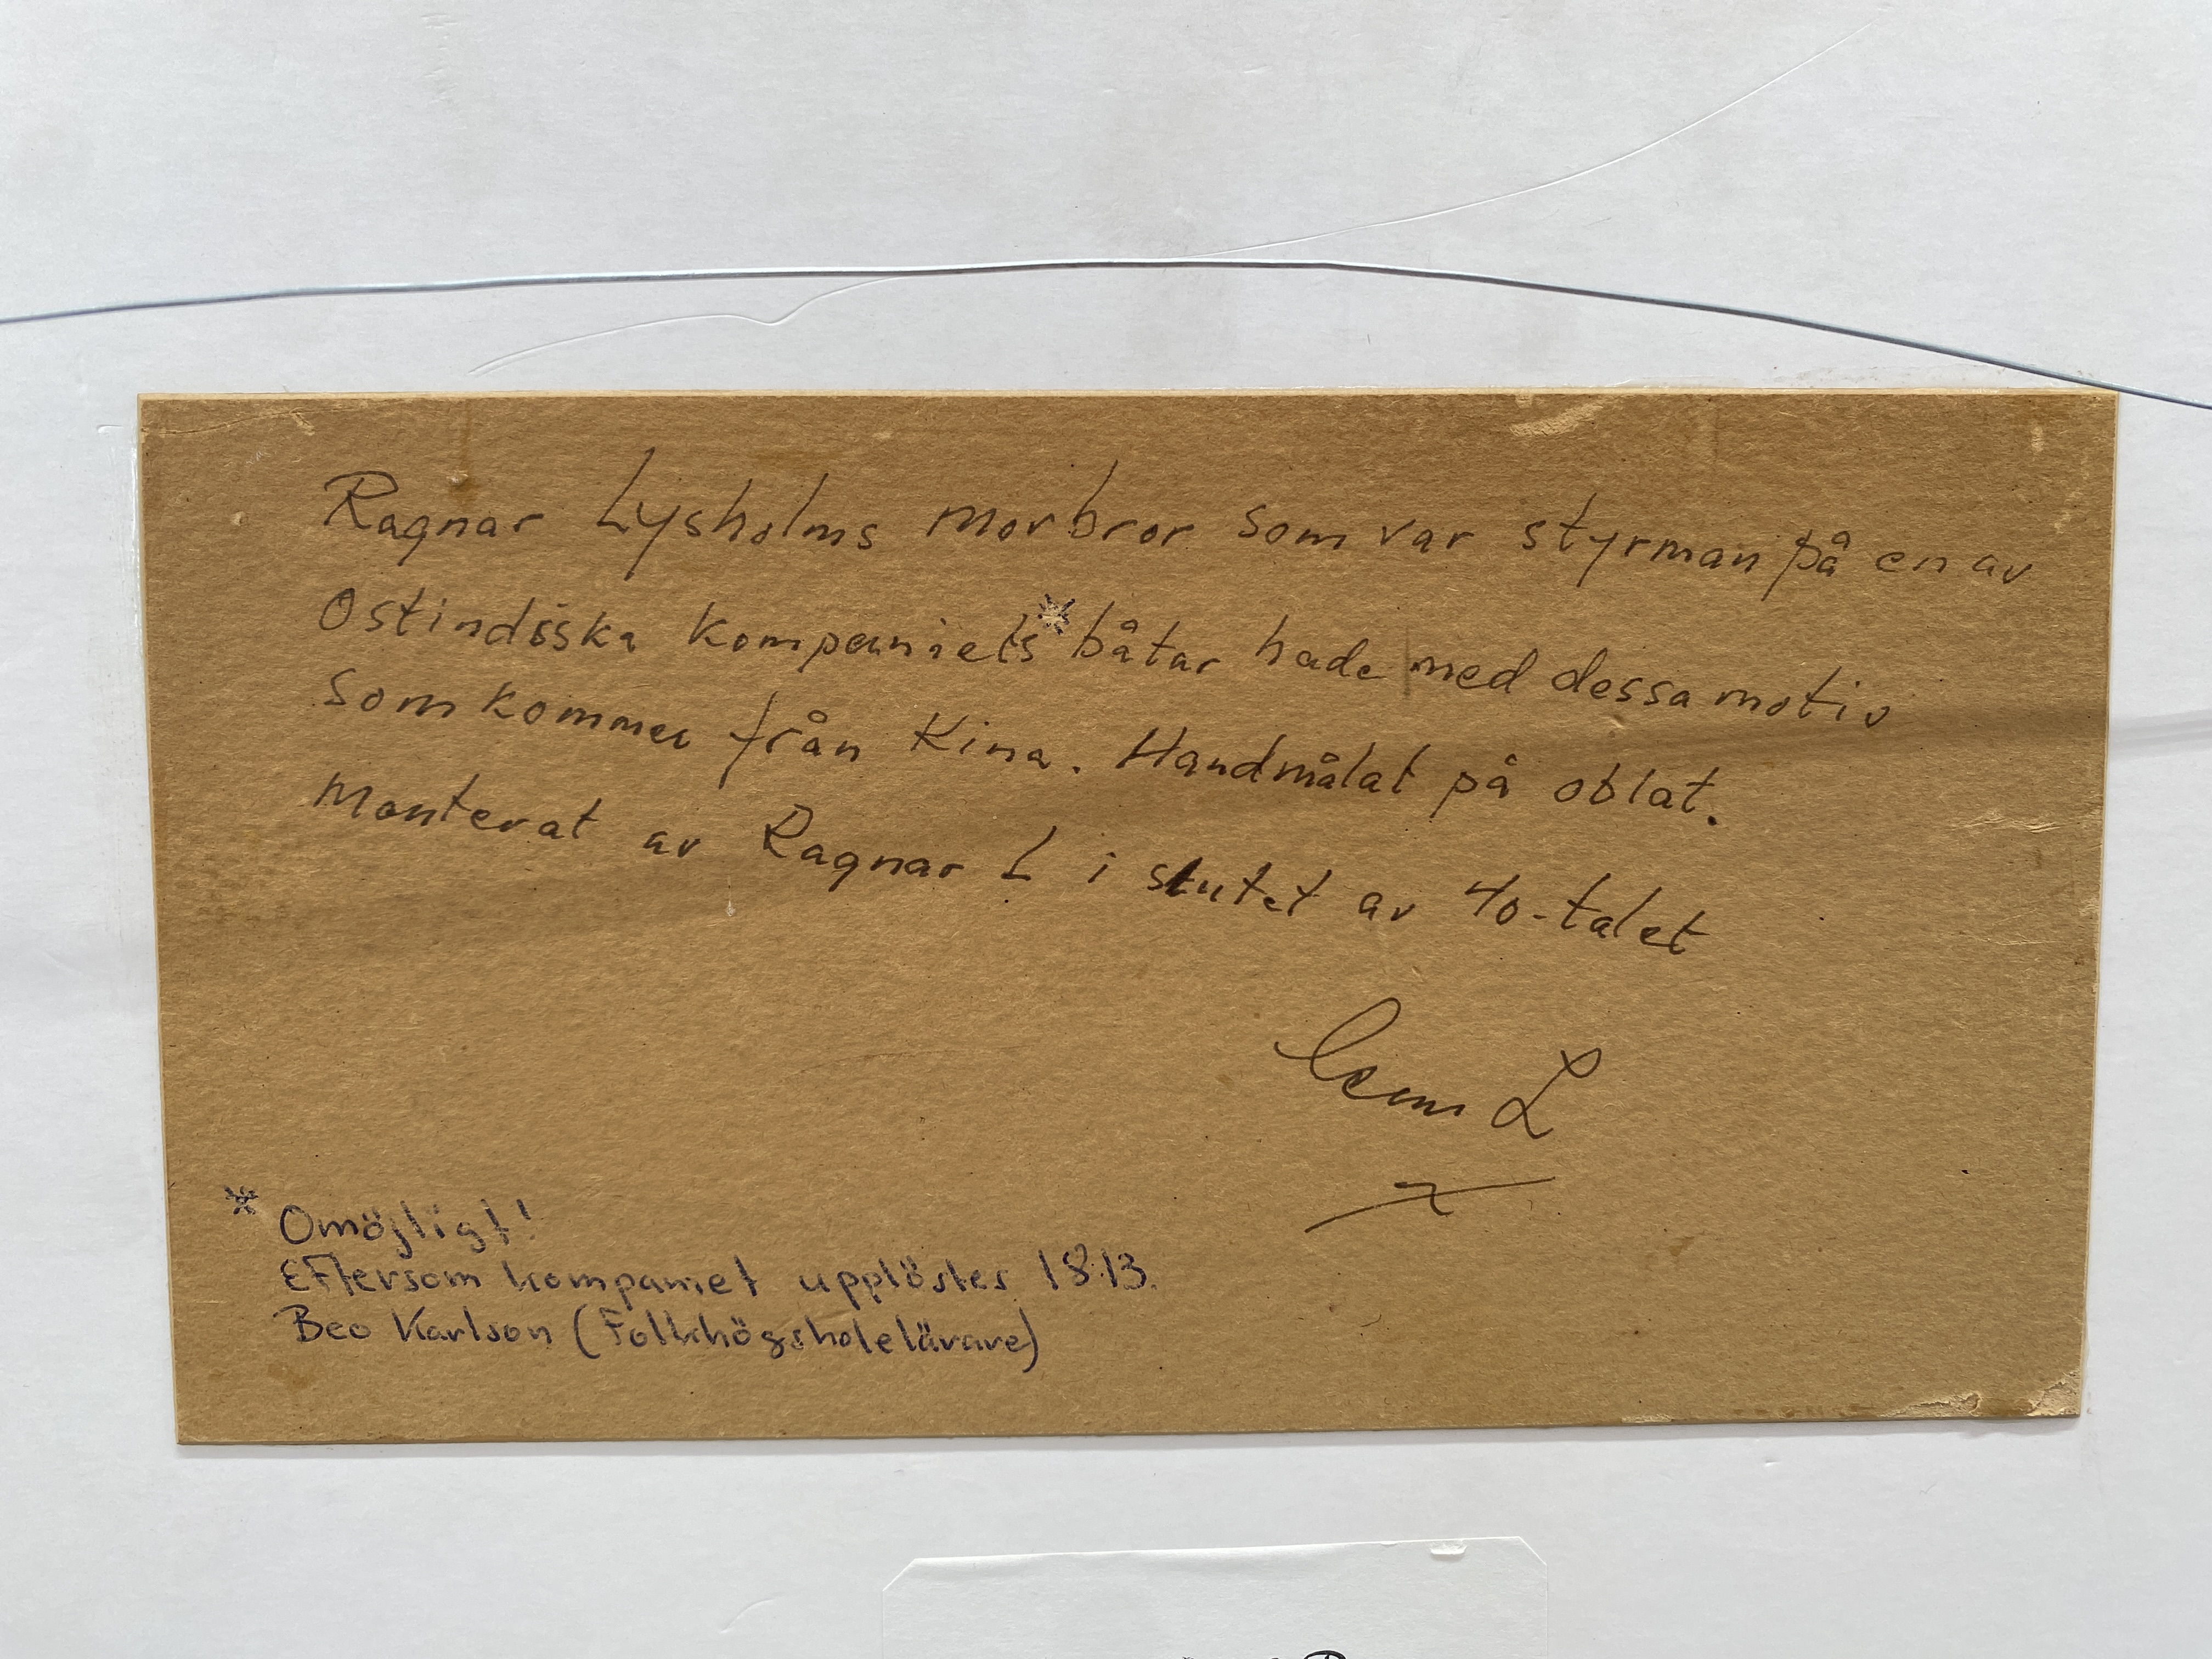 Ragnar Lysholms morbror som var styrman på en av
Ostindiska Kompaniets* båtar hade med dessa motiv
som kommer från Kina. Handmålat på oblat.
Monterat av Ragnar L i slutet av 40-talet
L
* Omöjligt!
Eftersom kompaniet upplöstes 1813.
Beo Karlson (Folkhögskolelärare)